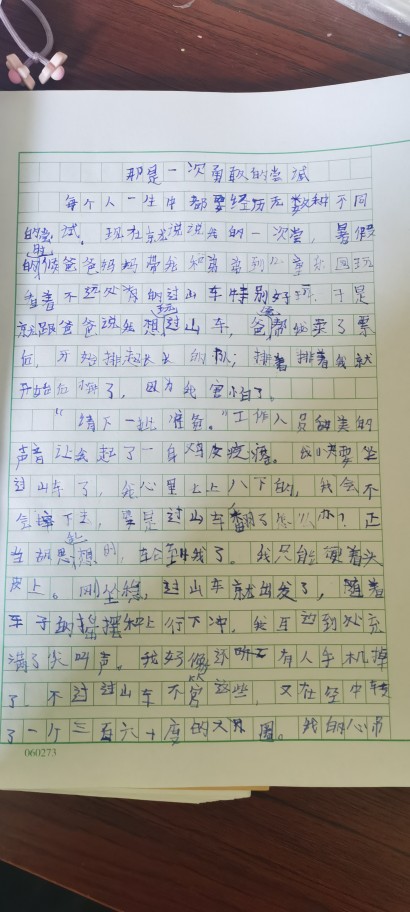 那是一次勇敢的尝试
每个人一生中都要经历无数种不同
的尝试，现在就说说我的一次尝，暑假
的时候爸爸妈妈带我和弟弟到儿童乐园玩
看着不远处的过山车特别好玩，于是
就跟爸爸说我想玩过山车，爸爸都给买了票
后，开始排起长长的队，排着排着我就
开始后悔了，因为我害怕了。
“请下一批准备。”工作人员甜美的
声音让我起了一身鸡皮疙瘩。我要坐
过山车了，我心里七上八下的，我会不
会摔下去，要是过山车翻了怎么办？正
当胡思乱想时，轮到我了。我只能硬着头
皮上。刚坐稳，过山车就出发了，随着
车子的摇摆和上行下冲，我耳边到处充
满了尖叫声。我好像还听有人手机掉
了，不过过山车不管这些，又在空中转
了一个三百六十度的大圈。我的心吊
060273